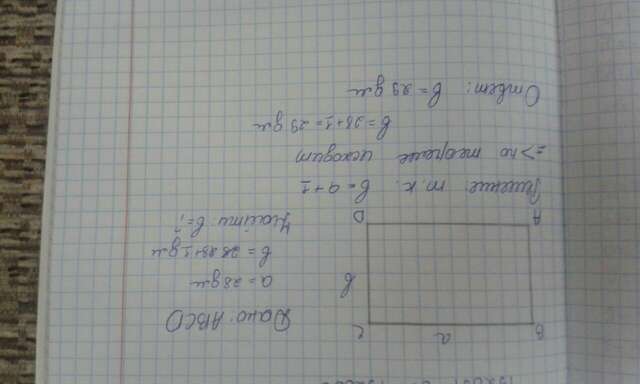 B a C
b
A D
Дано: ABCD
a = 28 дм
b = 28+1 дм
Найти: b = ?
Решение: т.к. b = a+1
=> по теореме исходит
b = 28+1 = 29 дм
Ответ: b = 29 дм